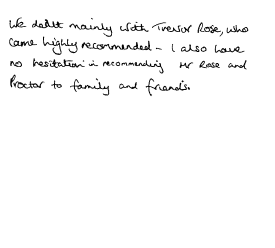 We dealt mainly with Trevor Rose, who
came highly recommended - I also have
no hesitation in recommending Mr Rose and
Proctor to family and friends.